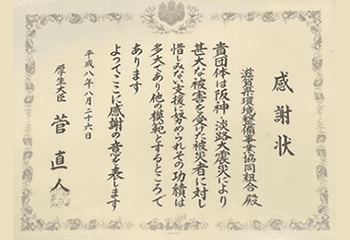 感謝状
滋賀県環境整備事業協同組合 殿
貴団体は阪神・淡路大震災により
甚大な被害を受けた被災者に対し
惜しみない支援に努められその功績は
多大であり他の模範とするところで
あります
よってここに感謝の意を表します
平成八年八月二十六日
厚生大臣 菅 直人